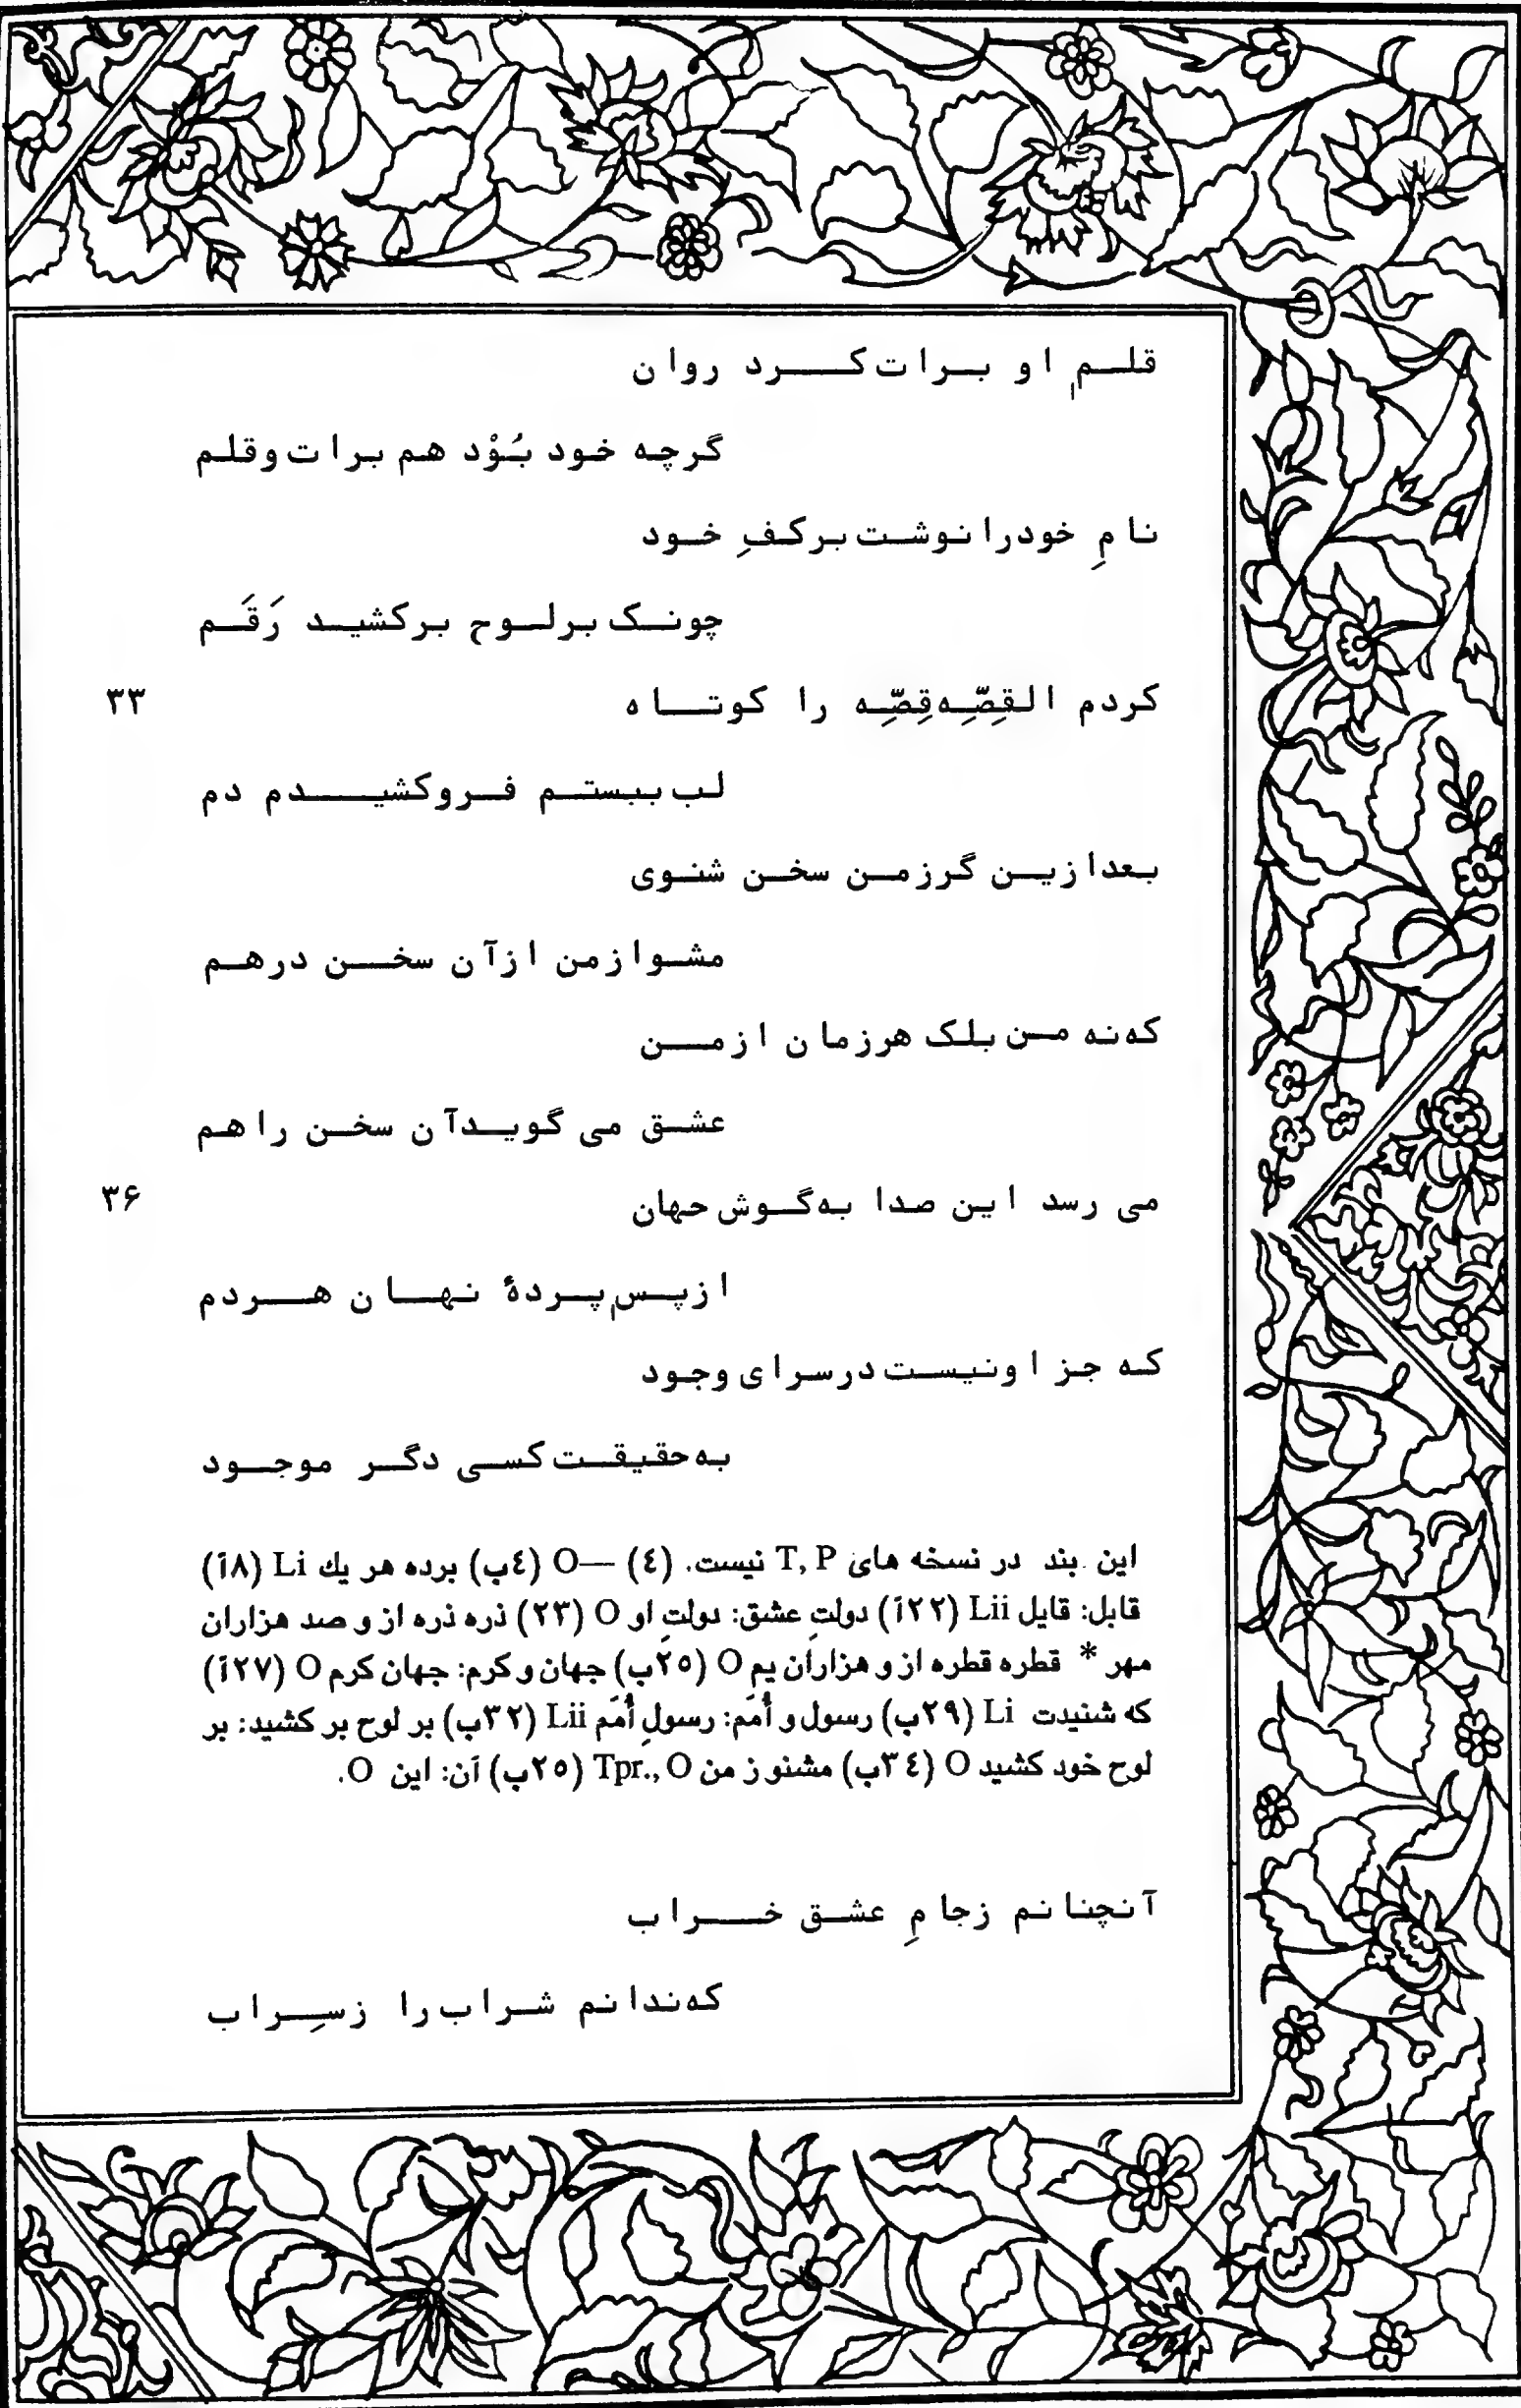 قلم او برات کرد روان
گرچه خود بُوْد هم برات و قلم
نامِ خود را نوشت بر کفِ خود
چونک بر لوح برکشید رَقَم
کردم القِصِّه قِصِّه را کوتاه ۳۳
لب ببستم فرو کشیدم دم
بعد ازین گر ز من سخن شنوی
مشو از من از آن سخن درهم
که نه من بلک هر زمان از من
عشق می گوید آن سخن را هم
می رسد این صدا به گوش جهان ۳۶
از پسِ پردهٔ نهان هردم
که جز او نیست در سرای وجود
به حقیقت کسی دگر موجود
این بند در نسخه های T, P نیست. (٤) —O (٤ب) برده هر یك Li (٨آ)
قابل: قایل Lii (٢٢آ) دولتِ عشق: دولتِ او O (٢٣) ذره ذره از و صد هزاران
مهر * قطره قطره از و هزاران یم O (٢٥ب) جهان و کرم: جهان کرم O (٢٧آ)
که شنیدت Li (٢٩ب) رسول و اُمَم: رسولِ اُمَم Lii (٣٢ب) بر لوح بر کشید: بر
لوح خود کشید O (٣٤ب) مشنو ز من Tpr., O (٢٥ب) آن: این O.
آنچنانم ز جامِ عشق خراب
که ندانم شراب را ز سِراب